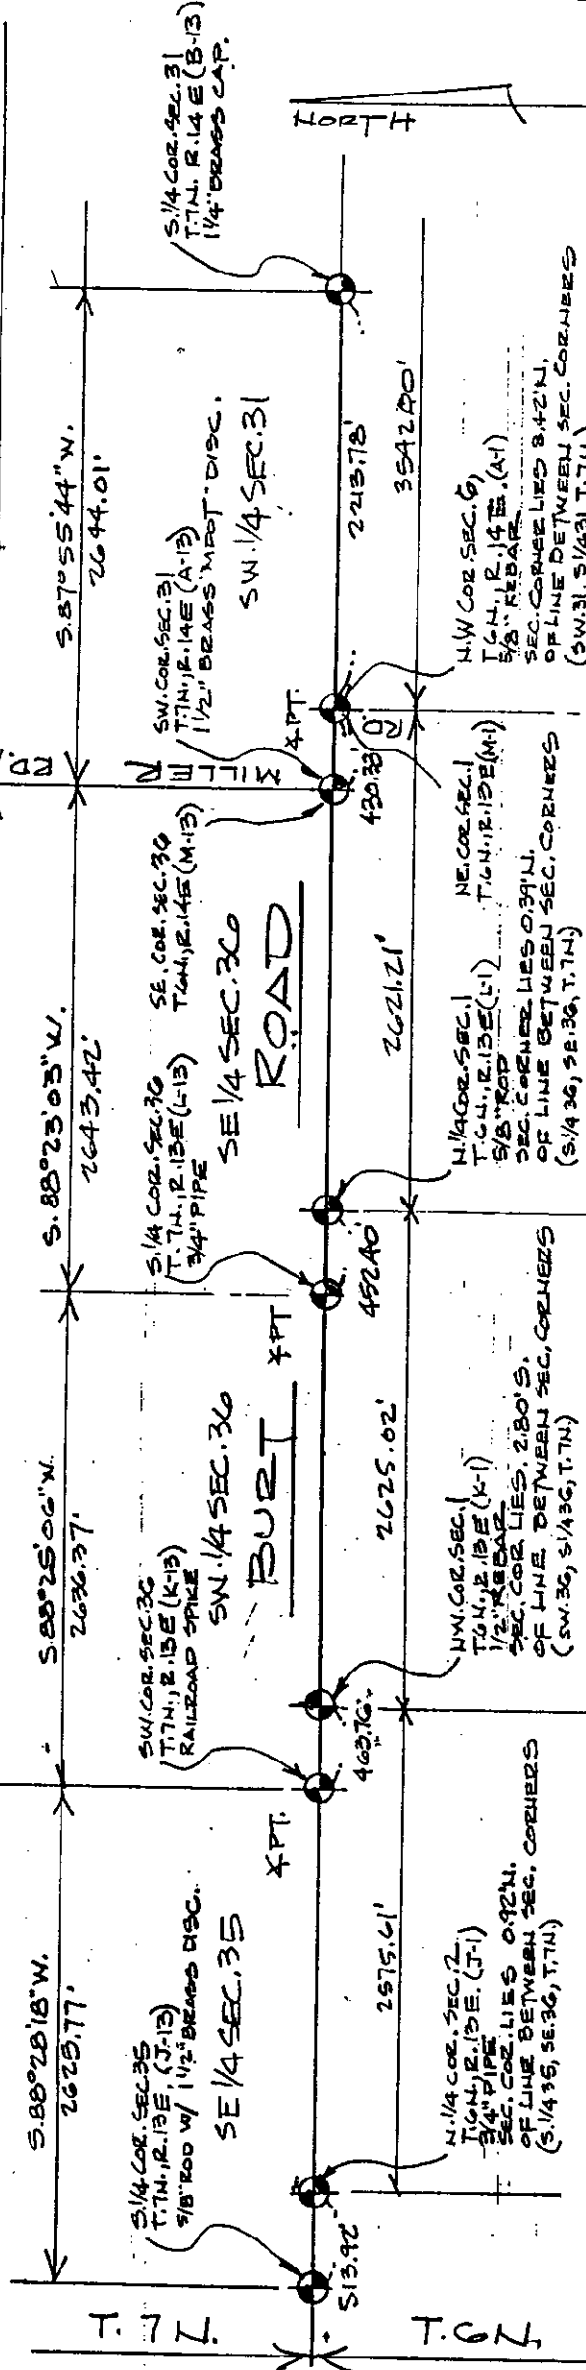 S.88°28'18"W.
2625.77'
S.88°25'06"W.
2636.37'
S.88°23'03"W.
2643.42'
S.87°55'44"W.
2644.01'
RD.
S.1/4 COR. SEC 35
T.7N., R.13E, (J-13)
5/8" ROD W/ 1 1/2" BRASS DISC.
SE 1/4 SEC. 35
SW. COR. SEC. 36
T.7N., R.13E (K-13)
RAILROAD SPIKE
SW. 1/4 SEC. 36
S.1/4 COR. SEC. 36
T.7N., R.13E (L-13)
3/4" PIPE
SE 1/4 SEC. 36
SE. COR. SEC. 36
T.6N., R.14E (M-13)
SW. COR. SEC. 31
T.7N., R.14E (A-13)
1 1/2" BRASS "MDOT" DISC.
SW. 1/4 SEC. 31
S.1/4 COR. SEC. 31
T.7N. R.14E (B-13)
1 1/4" BRASS CAP.
BURT
ROAD
MILLER
RD
NORTH
∡PT.
∡PT
∡PT.
T. 7 N.
T. 6 N.
513.92'
463.76'
452.40'
430.33'
2213.78'
2575.61'
2625.02'
2621.21'
3542.00'
N.1/4 COR. SEC. 2
T.6N., R.13E. (J-1)
3/4" PIPE
SEC. COR. LIES 0.92'N.
OF LINE BETWEEN SEC. CORNERS
(S.1/4 35, SE.36, T.7N)
NW. COR. SEC. 1
T.6N., R.13E (K-1)
1/2" REBAR
SEC. COR LIES. 2.80'S.
OF LINE BETWEEN SEC. CORNERS
(SW.36, S1/436, T.7N)
N.1/4 COR. SEC. 1
T.6N., R.13E (L-1)
5/8" ROD
SEC. CORNER LIES 0.39'N.
OF LINE BETWEEN SEC. CORNERS
(S.1/4 36, SE.36, T.7N)
NE. COR. SEC. 1
T.6N., R.13E (M-1)
N.W COR. SEC. 6,
T.6N., R.14E. (A-1)
5/8" REBAR
SEC. CORNER LIES 3.42'N.
OF LINE BETWEEN SEC. CORNERS
(SW.31, S1/431, T.7N)